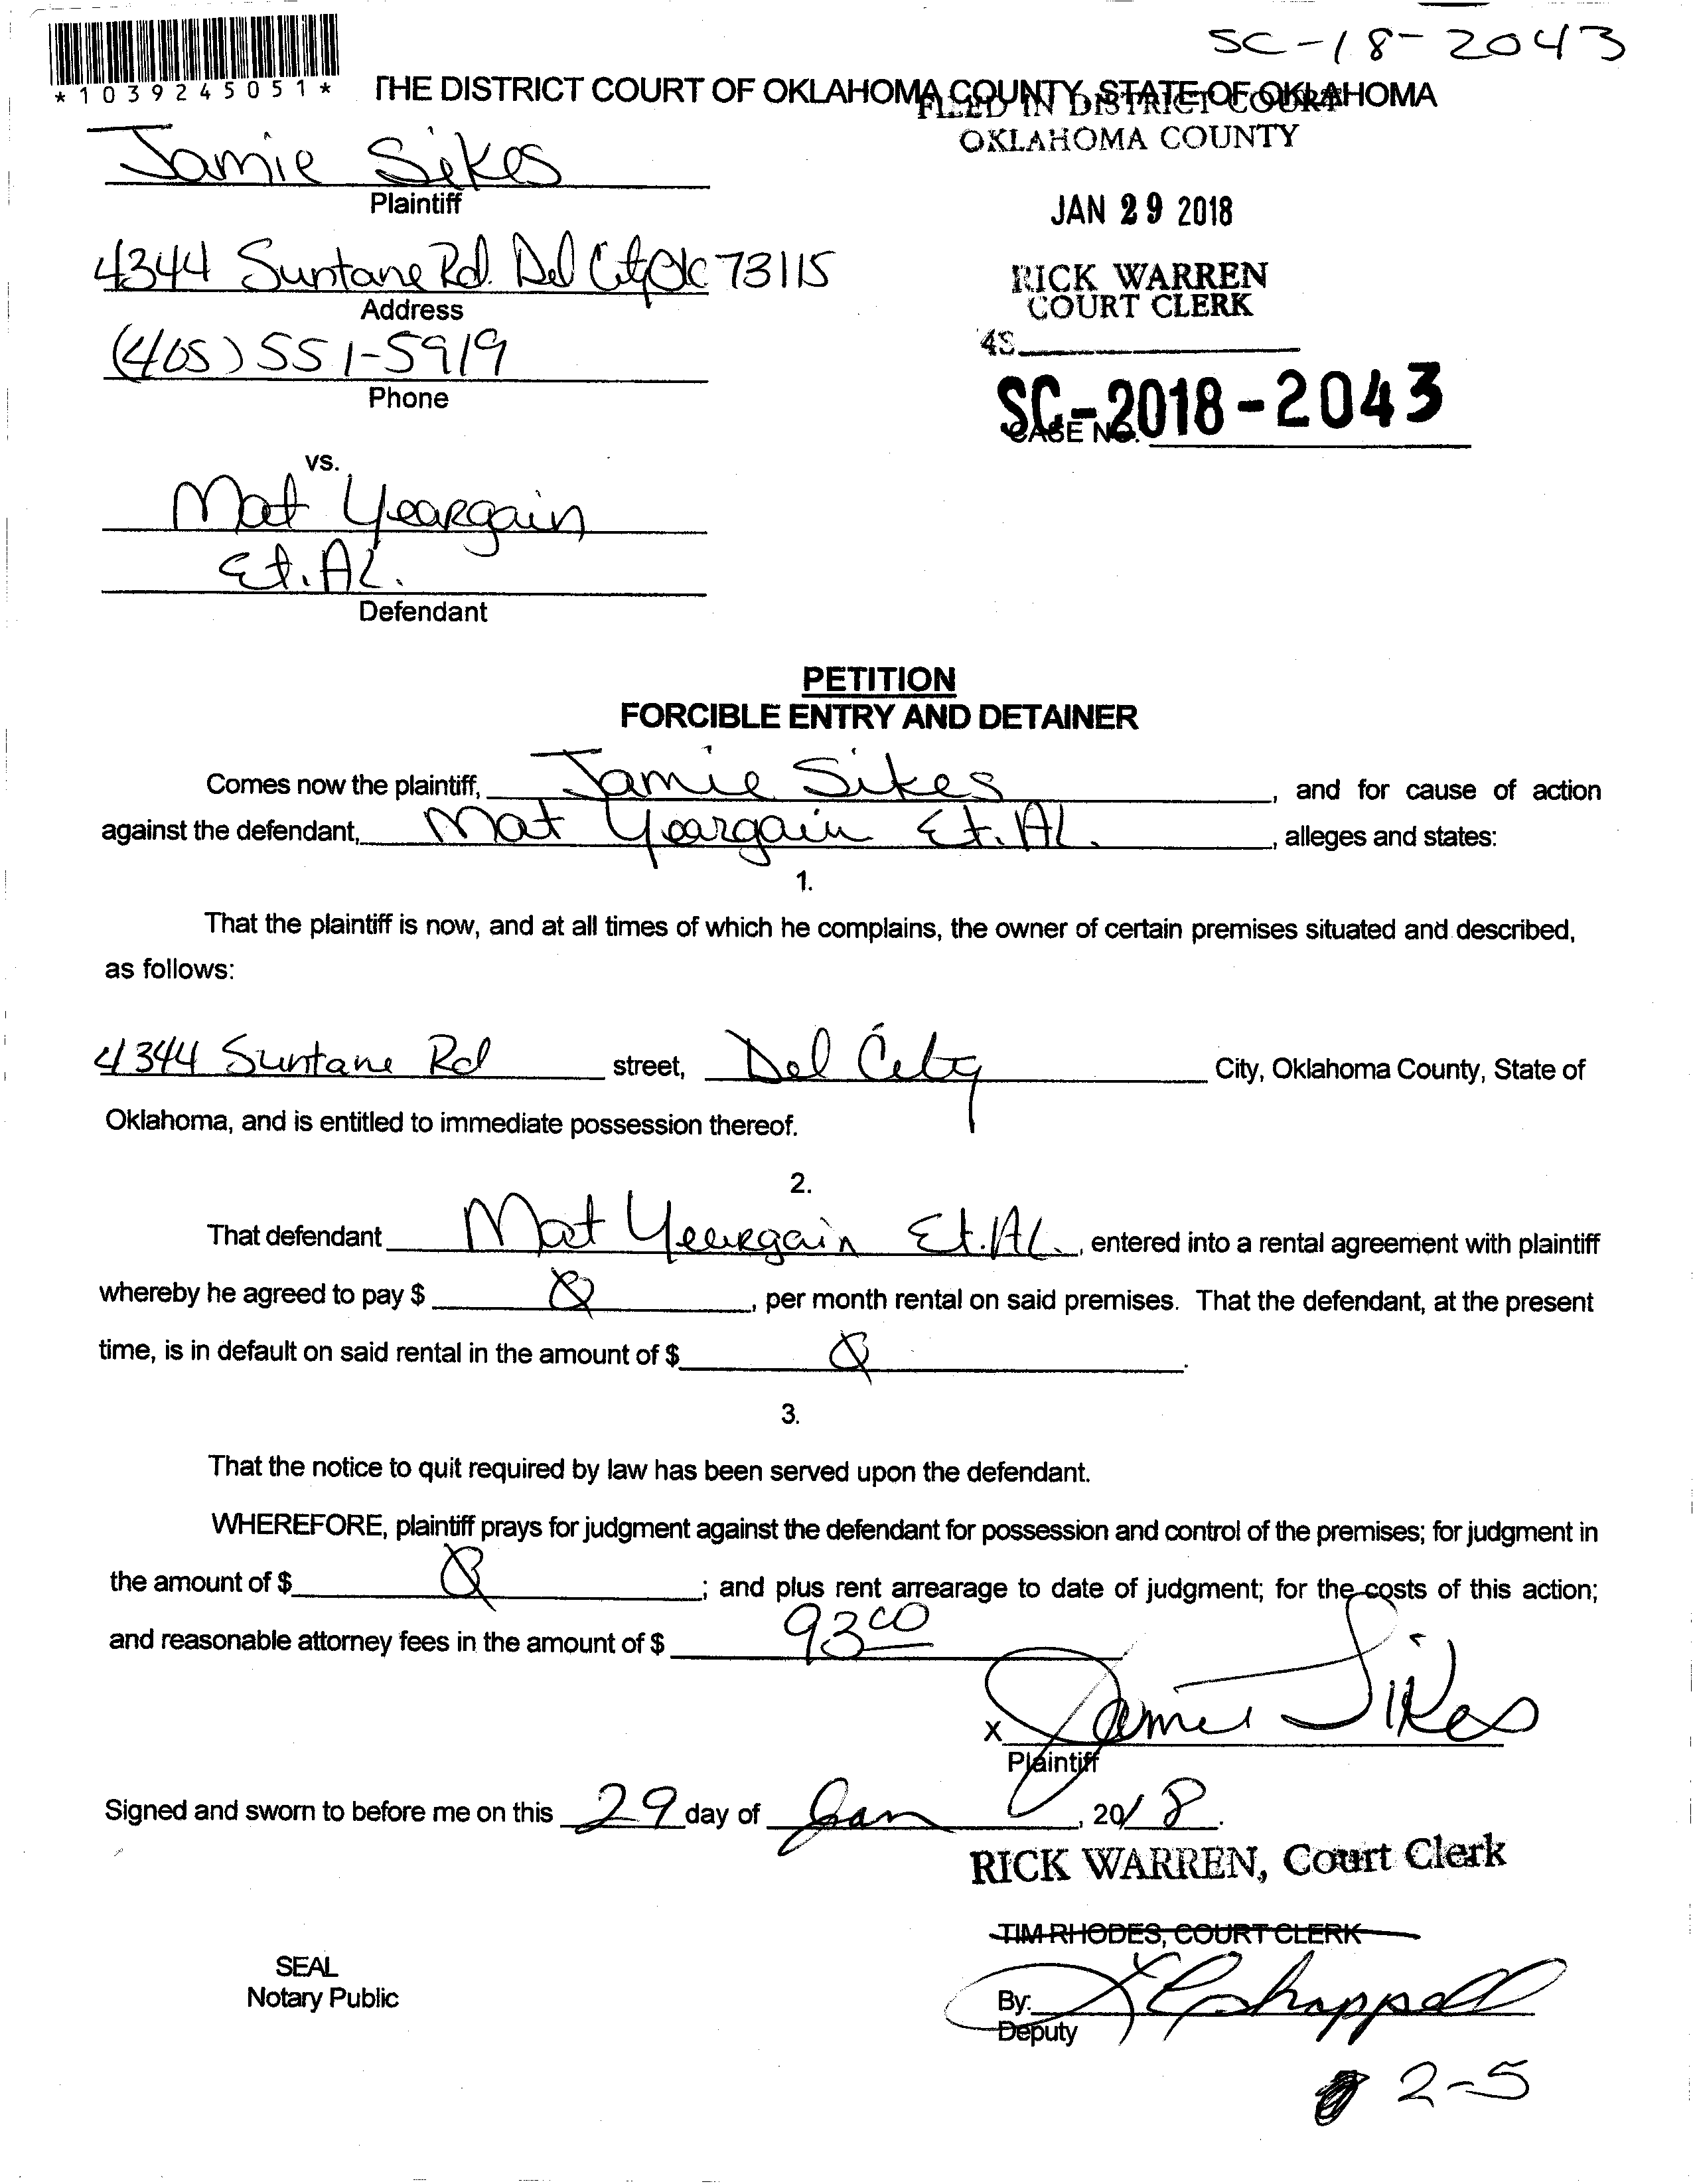 SC-18-2043
*1039245051*
THE DISTRICT COURT OF OKLAHOMA COUNTY, STATE OF OKLAHOMA
FILED IN DISTRICT COURT
OKLAHOMA COUNTY
Jamie Sikes
Plaintiff
JAN 29 2018
4344 Suntane Rd. Del City Ok 73115
Address
RICK WARREN
COURT CLERK
(405) 551-5919
Phone
48
SC-2018-2043
CASE NO.
vs.
Mat Yeargain
Et. Al.
Defendant
PETITION
FORCIBLE ENTRY AND DETAINER
Comes now the plaintiff, Jamie Sikes, and for cause of action
against the defendant, Mat Yeargain Et. Al., alleges and states:
1.
That the plaintiff is now, and at all times of which he complains, the owner of certain premises situated and described,
as follows:
4344 Suntane Rd street, Del City City, Oklahoma County, State of
Oklahoma, and is entitled to immediate possession thereof.
2.
That defendant Mat Yeargain Et. Al., entered into a rental agreement with plaintiff
whereby he agreed to pay $ 0, per month rental on said premises. That the defendant, at the present
time, is in default on said rental in the amount of $ 0.
3.
That the notice to quit required by law has been served upon the defendant.
WHEREFORE, plaintiff prays for judgment against the defendant for possession and control of the premises; for judgment in
the amount of $ 0; and plus rent arrearage to date of judgment; for the costs of this action;
and reasonable attorney fees in the amount of $ 93 00
X Jamie Sikes
Plaintiff
Signed and sworn to before me on this 29 day of Jan, 2018.
RICK WARREN, Court Clerk
TIM RHODES, COURT CLERK
SEAL
Notary Public
By:
Deputy
2-5